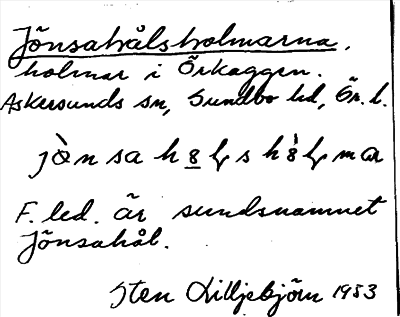 Jönsahålsholmarna.
holmar i Örkaggen.
Askersunds sn, Sundbo hd, Ör. l.
F. led. är sundsnamnet
Jönsahål.
Sten Lilljebjörn 1953